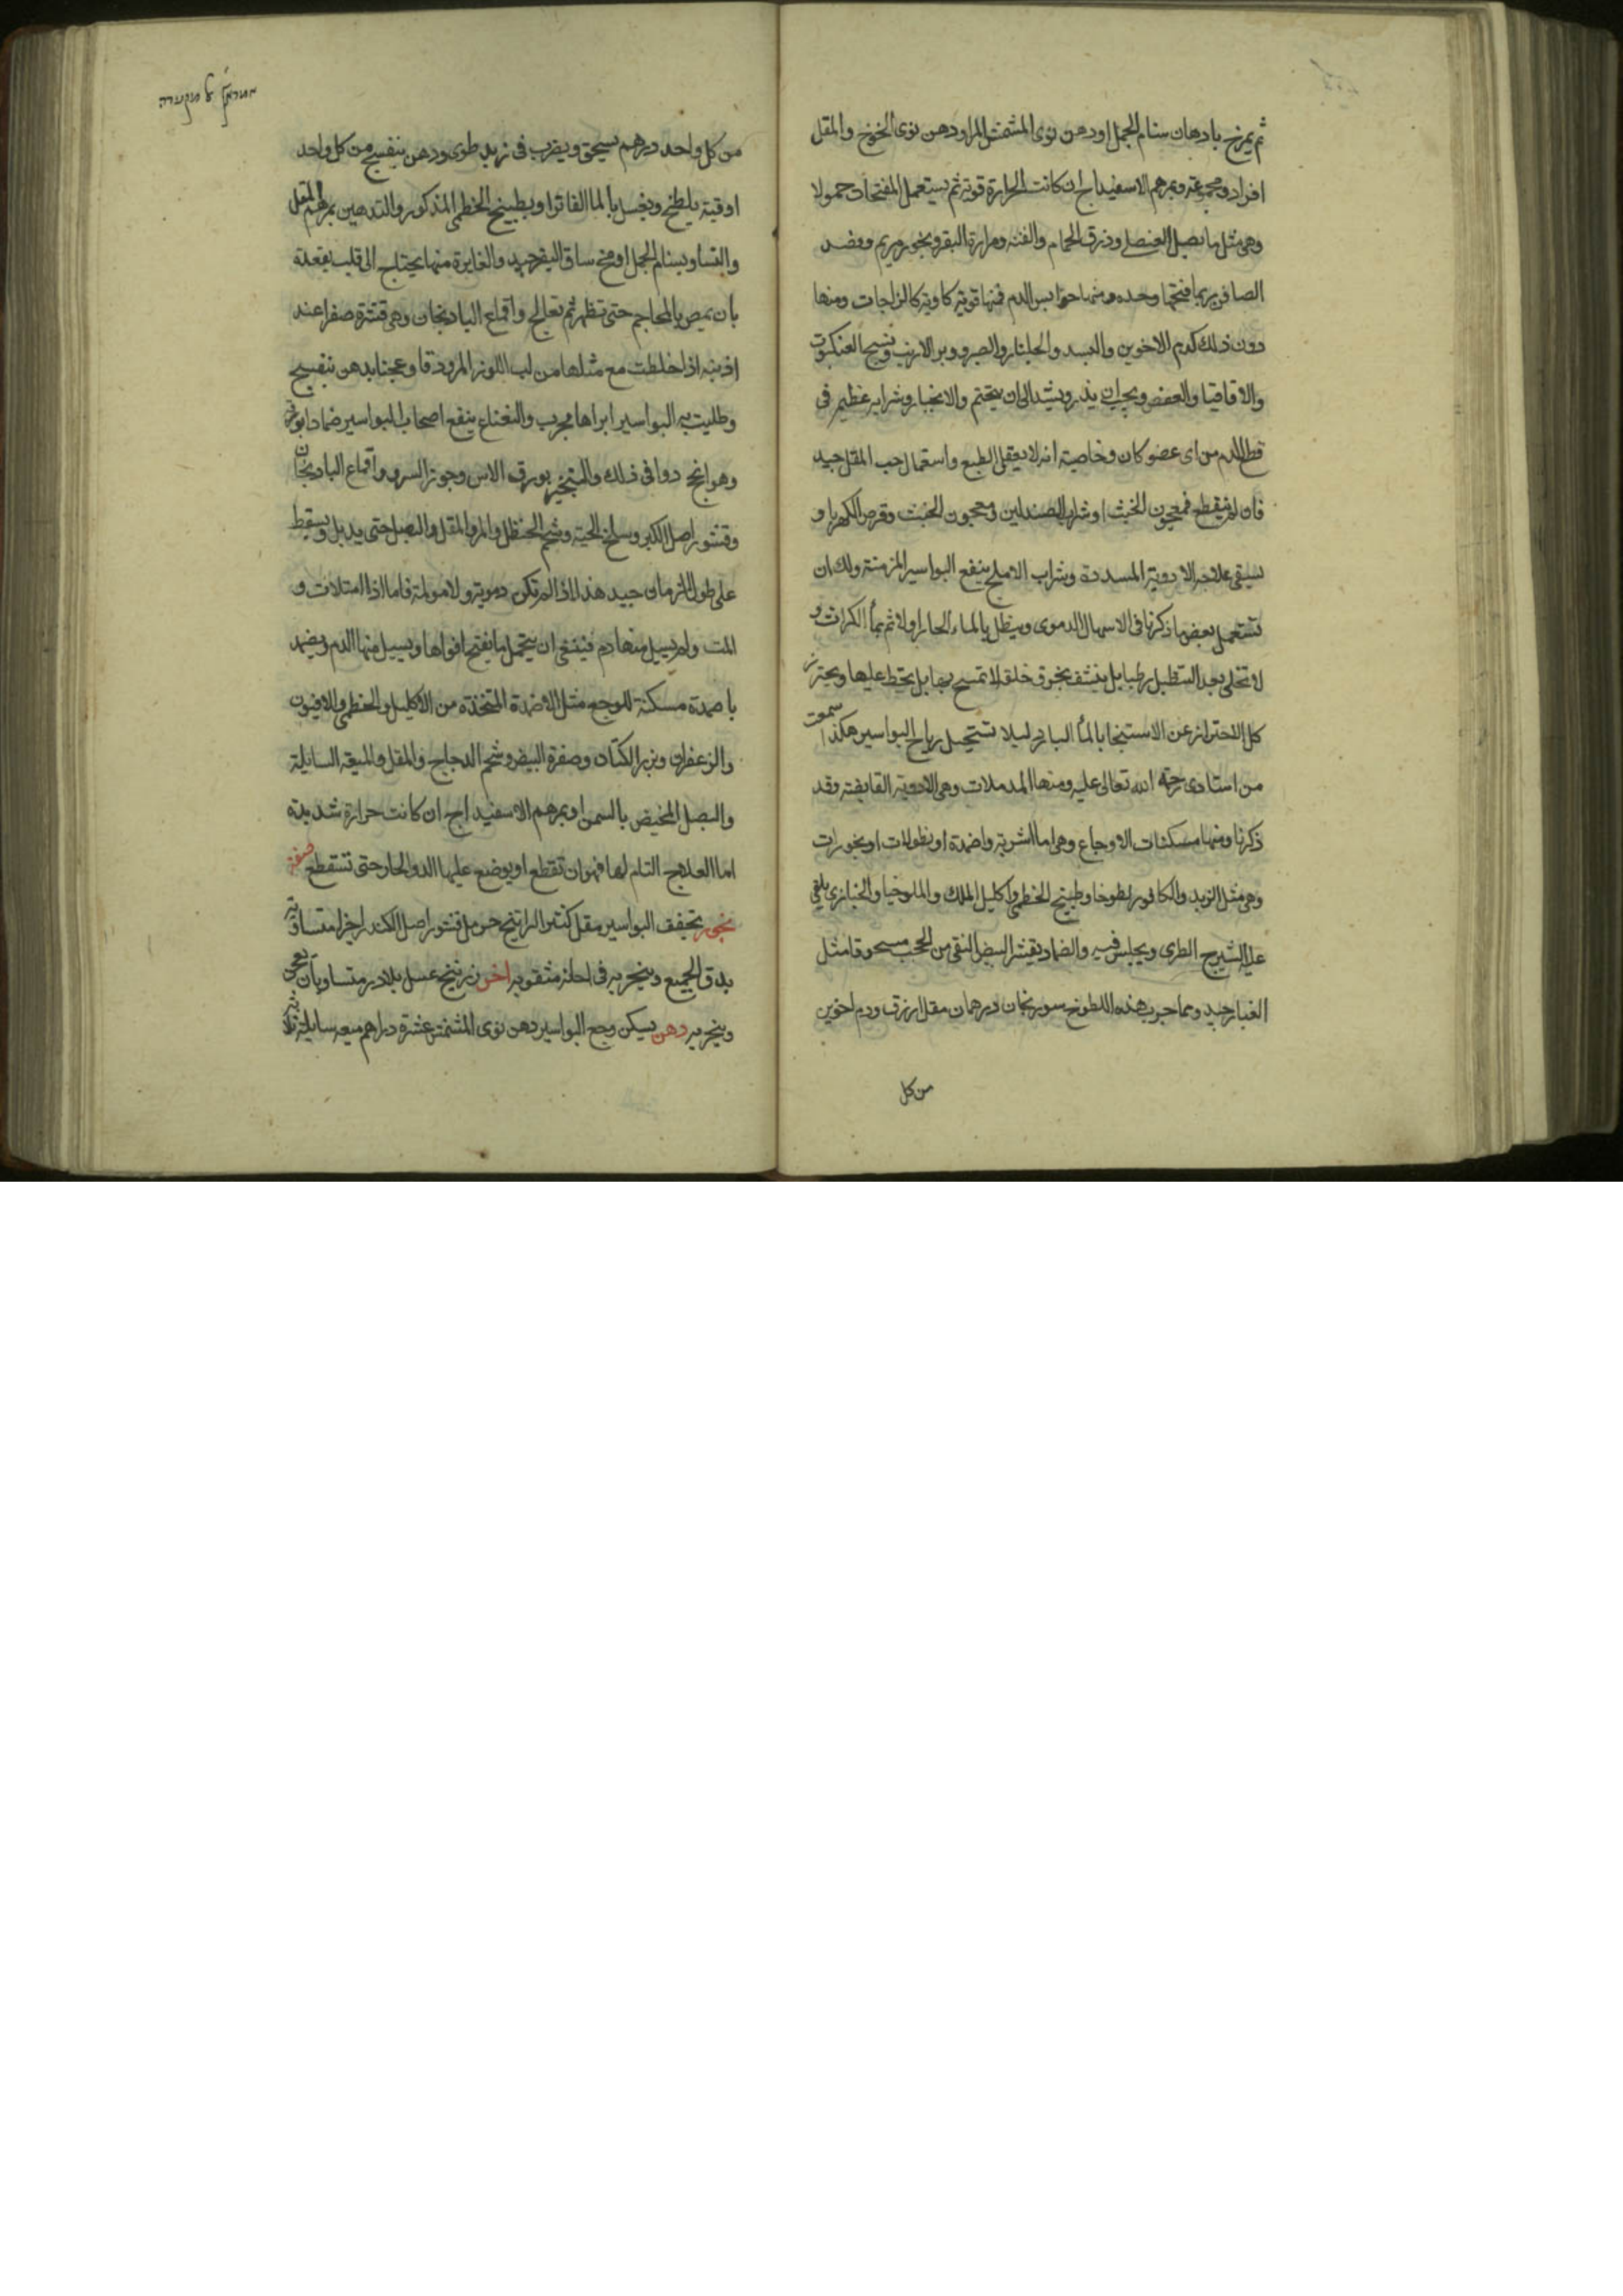 ثم يمرخ بادهان سنام الجمل او دهن نوى المشمش المر او دهن نوى الخوخ والمقل
افراد ومجموعة وبمرهم الاسفيداج ان كانت الحرارة قوية ثم يستعمل المفتحات حمولا
وهى مثل ماء بصل العنصل وذرق الحمام والقنه ومرارة البقر وبخور مريم وفصد
الصافن بربما فتحها وحده ومنها حوابس الدم فمنها قوية كاوية كالزاجات ومنها
دون ذلك كدم الاخوين والبسد والجلنار والصبر ووبر الارنب ونسج العنكبوت
والاقاقيا والعفص ويجب ان يذر ويشد الى ان يختم والانجبار وشرابه عظيم فى
قطع الدم من اى عضو كان وخاصيته انه لا يعقل الطبع واستعمال حب المقل جيد
فان لم ينقطع فمعجون الخبث او شراب الصندلين ومعجون الخبث وقرص الكهربا و
يسقى علاجه الادوية المسددة وشراب الاملج ينفع البواسير المزمنة ولك ان
تستعمل بعض ما ذكرنا فى الاسهال الدموى وينطل بالماء الحار اولا ثم بماء الكراث و
لا تخلى بعد التنطيل رطبا بل ينشف بخرق خلقه لا تمسح بها بل يحط عليها ويحترز
كل الاحتراز عن الاستنجا بالماء البارد ليلا تستحيل رياح البواسير هكذا سمعت
من استادى رحمة الله تعالى عليه ومنها المدملات وهى الادوية القابضة وقد
ذكرنا ومنها مسكنات الاوجاع وهى اما اشربة واضمدة او نطولات او بخورات
وهى مثل الزبد والكافور لطوخا وطبيخ الخطمى واكليل الملك والملوخيا والخبازى يلقى
عليه الشيرج الطرى ويجلس فيه والضماد بقشر البيض النقى من الحجب مسحوقا مثل
الغبار جيد ومما جرب هذه اللطوخ سورنجان درهمان مقل ازرق ودم اخوين
من كل
من كل واحد درهم يسحق ويضرب فى زبد طرى ودهن بنفسج من كل واحد
اوقية يلطخ ويغسل بالماء الفاتر او بطبيخ الخطمى المذكور والتدهين بمرهم المقل
والتساو بسنام الجمل او مخ ساق البقر جيد والغايرة منها يحتاج الى قلب مقعدة
بان يمص بالمحاجم حتى تظهر ثم تعالج واقماع الباذنجان وهى قشرة صفرا عند
اذينه اذا خلطت مع مثلها من لب اللوز المر ودقا وعجنا بدهن بنفسج
وطليت به البواسير ابراها مجرب والنعناع ينفع اصحاب البواسير ضمادا بورقه
وهو انجح دوا فى ذلك والتبخير بورق الاس وجوز السرو واقماع الباذنجان
وقشور اصل الكبر وسلخ الحية وشحم الحنظل والمر والمقل والبصل حتى يذبل ويسقط
على طول الزمان جيد هذا اذا لم تكن دموية ولا مولمة فاما اذا امتلات و
المت ولم يسيل منها دم فينبغى ان يتحمل ما يفتح افواها ويسيل منها الدم ويضمد
باضمدة مسكنة للوجع مثل الاضمدة المتخذة من الاكليل والخطمى والافيون
والزعفران وبزر الكتان وصفرة البيض وشحم الدجاج والمقل والميعة السايلة
والبصل المخيض بالسمن او بمرهم الاسفيداج ان كانت حرارة شديدة
اما العلاج التام لها فهو ان تقطع او يوضع عليها الدوا الحار حتى تسقطع صفة
بخور تجفف البواسير مقل كندر الراتينج حرمل قشور اصل الكندر اجزا متساوية
يدق الجميع ويبخر به فى اجانة مثقوبه اخر زرنيخ عسل بلادر متساويان يعجن
ويبخر به دهن يسكن وجع البواسير دهن نوى المشمش عشرة دراهم ميعه سايلة ثلاثة